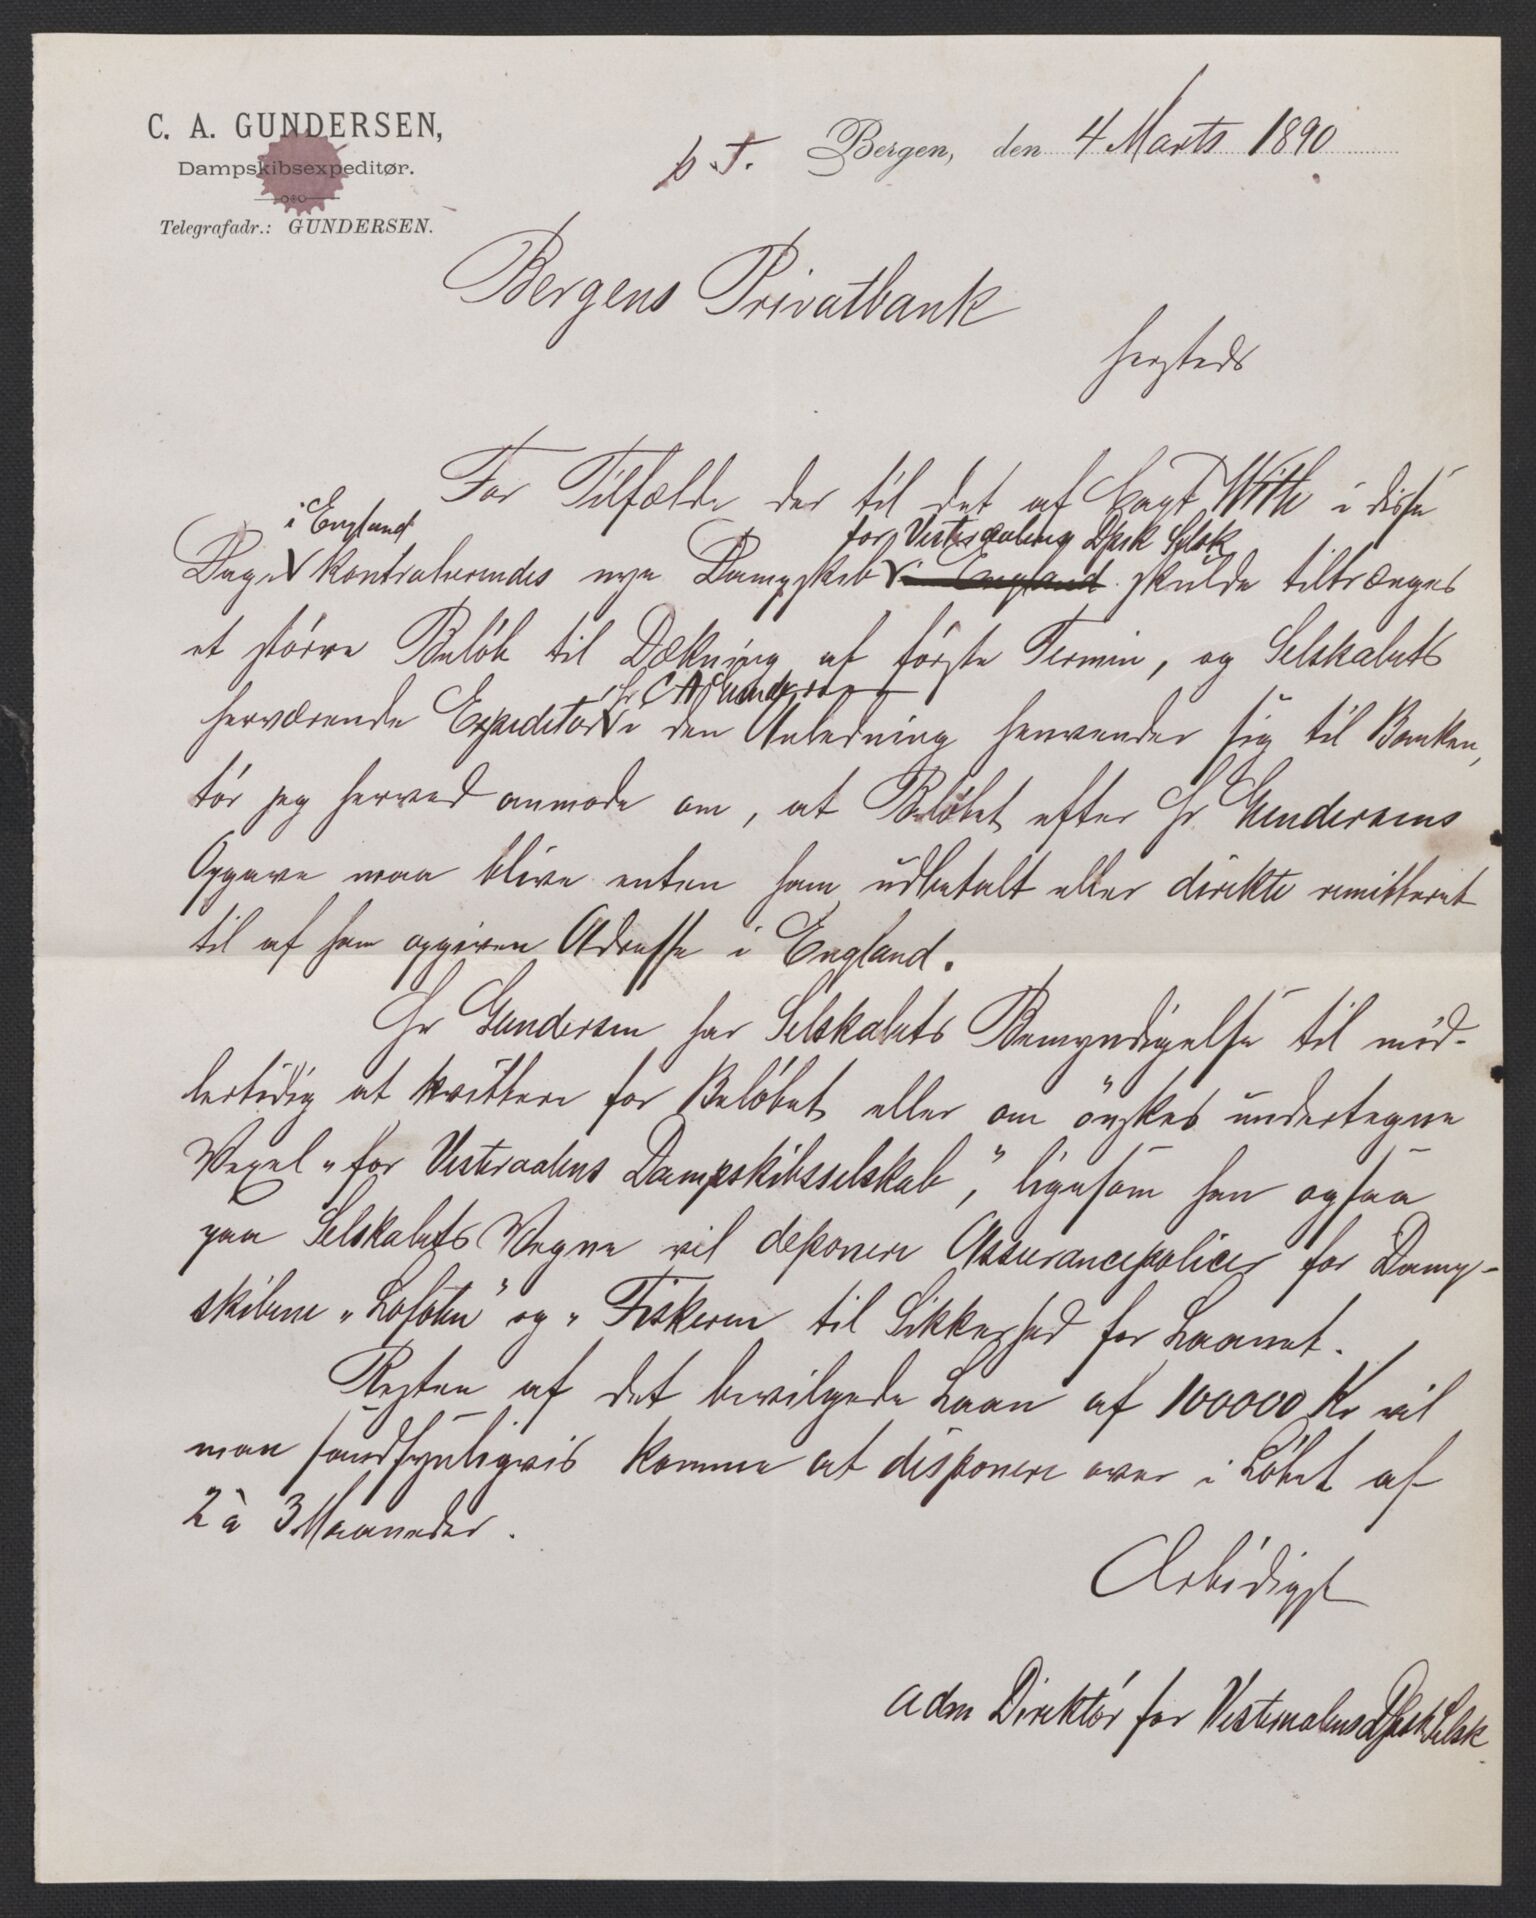 C. A. GUNDERSEN,
Dampskibsexpeditør.
Telegrafadr.: GUNDERSEN.
p. T. Bergen, den 4 Marts 1890
Bergens Privatbank
hersteds
For Tilfælde der til det af Capt With i disse
i England for Vesteraalens Dpsk Selsk
Dage kontraherendes nye Dampskib i England skulde tiltrænges
et større Beløb til Dækning af første Termin, og Selskabets
Hr C A Gundersen
herværende Expeditør i den Anledning henvender sig til Banken,
tør jeg herved anmode om, at Beløbet efter Hr Gundersens
Opgave maa blive enten ham udbetalt eller direkte remitteret
til af ham opgiven Adresse i England.
Hr Gundersen har Selskabets Bemyndigelse til mid-
lertidig at kvittere for Beløbet eller om ønskes undertegne
Vexel "for Vesteraalens Dampskibsselskab", ligesom han ogsaa
paa Selskabets Vegne vil deponere Assurancepolicer for Damp-
skibene "Lofoten" og "Fiskeren til Sikkerhed for Laanet.
Resten af det bevilgede Laan af 100000 Kr vil
man sandsynligvis komme at disponere over i Løbet af
2 à 3 Maaneder.
Ærbødigst
adm Direktør for Vesteraalens Dpsk Selsk